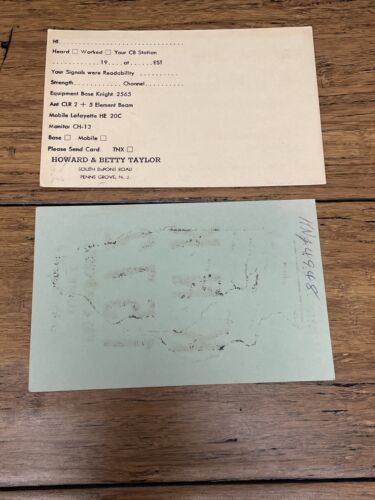 HI. . . . . . . . . . . . . . . . . . . . . . . . . . . . . . . .
Heard □ Worked □ Your CB Station
. . . . . . . . . . . . . 19. . . . at . . . . . . EST
Your Signals were Readability . . . . . . . . . .
Strength. . . . . . . . . . . . . Channel. . . . . . . . . .
Equipment Base Knight 2565
Ant CLR 2 + 5 Element Beam
Mobile Lafayette HE 20C
Monitor CH-13
Base □ Mobile □
Please Send Card. TNX □
HOWARD & BETTY TAYLOR
SOUTH DuPONT ROAD
PENNS GROVE, N. J.